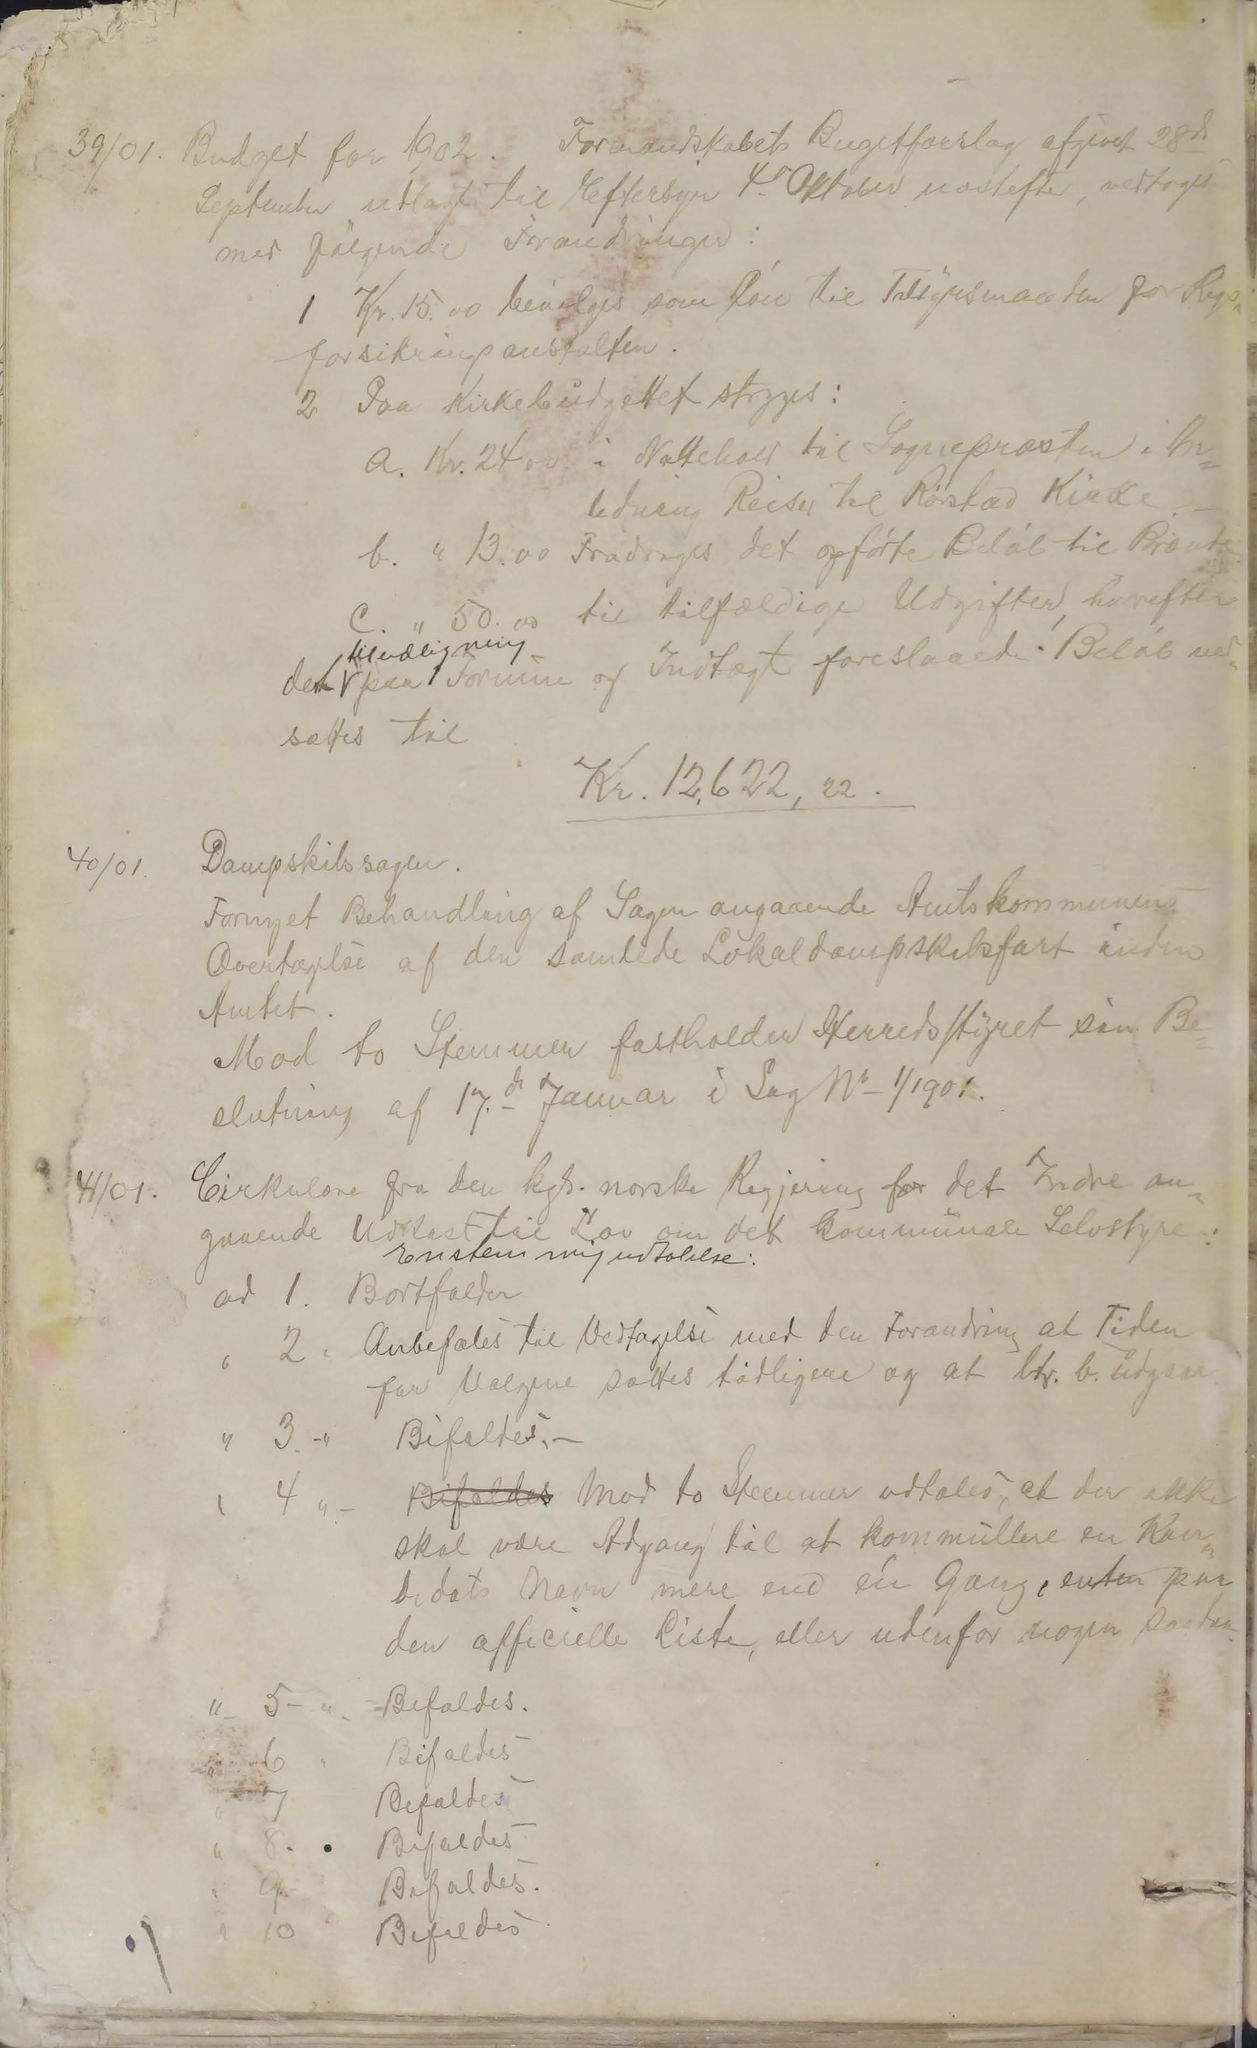 39/01. Budget for 1902. Formandskabets Bugetforslag afgivet 28de
September utlagt til Eftersyn 4de Oktober næstefter, vedtoges
med følgende Forandringer:
1 Kr. 15.00 bevilges som Løn til Tilsynsmanden for Rigs-
forsikringsanstalten.
2 Paa Kirkebudgettet stryges:
a. Kr. 24.00 i Nattehold til Sognepræsten i An-
ledning Reiser til Rørstad Kirke.-
b. " 13.00 Fradrages det opførte Beløb til Brænde
C. " 50.00 til tilfældige Udgifter, hvorefter
tiludligning
det paa Formue og Indtægt foreslaaede Beløb ned-
sættes til
Kr. 12,622,22.
40/01. Dampskibssagen.
Fornyet Behandling af Sagen angaaende Amtskommunens
Overtagelse af den samlede Lokaldampskibsfart inden
Amtet.
Mod to Stemmer fastholder Herredsstyret sin Be-
slutning af 17.de Januar i Sag No - 1/1901.
41/01. Cirkulære fra den kgl. norske Regjering for det Indre an-
gaaende Udkast til Lov om det kommunale Selvstyre:
Enstemmig udtalelse:
ad 1. Bortfalder
" 2. Anbefales til Vedtagelse med den Forandring at Tiden
for Valgene sættes tidligere og at ltr. b. udgaar.
" 3. -" Bifaldes.-
" 4 " - Bifaldes Mod to Stemmer udtales, at der ikke
skal være Adgang til at kommullere en Kan-
didats Navn mere end én Gang, enten paa
den officielle Liste, eller udenfor nogen saadan.
"- 5- "- Bifaldes.
" 6 " Bifaldes
" 7 Bifaldes
" 8. . Bifaldes
" 9. Bifaldes.
" 10 Bifaldes